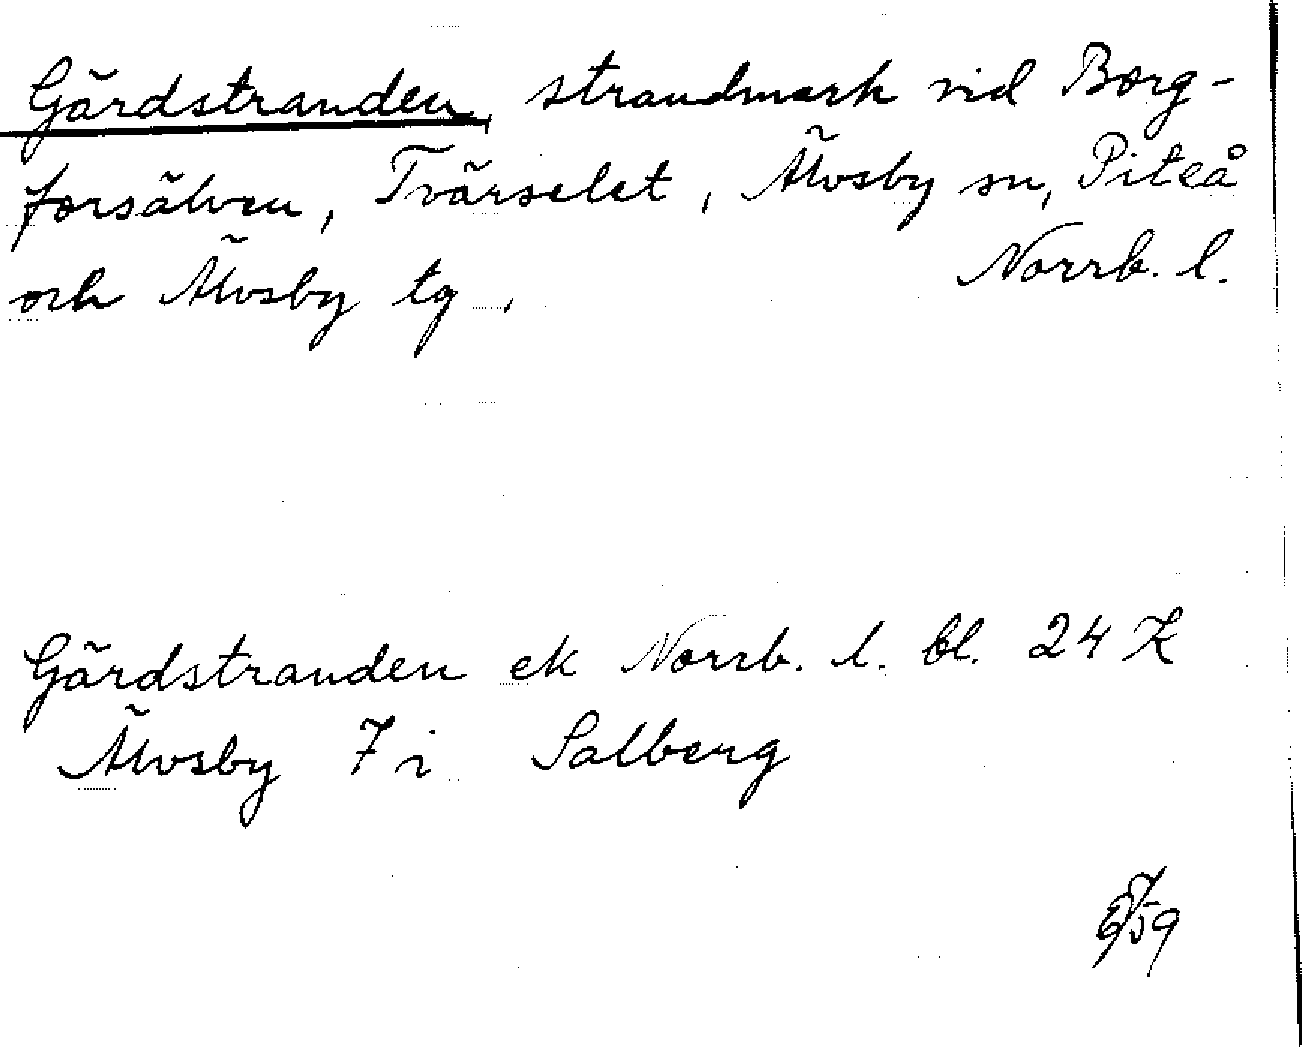 Gärdstranden, strandmark vid Borg-
forsälven, Tvärselet, Älvsby sn, Piteå
och Älvsby tg, Norrb. l.
Gärdstranden ek Norrb. l. bl. 24 K
Älvsby 7 i Salberg